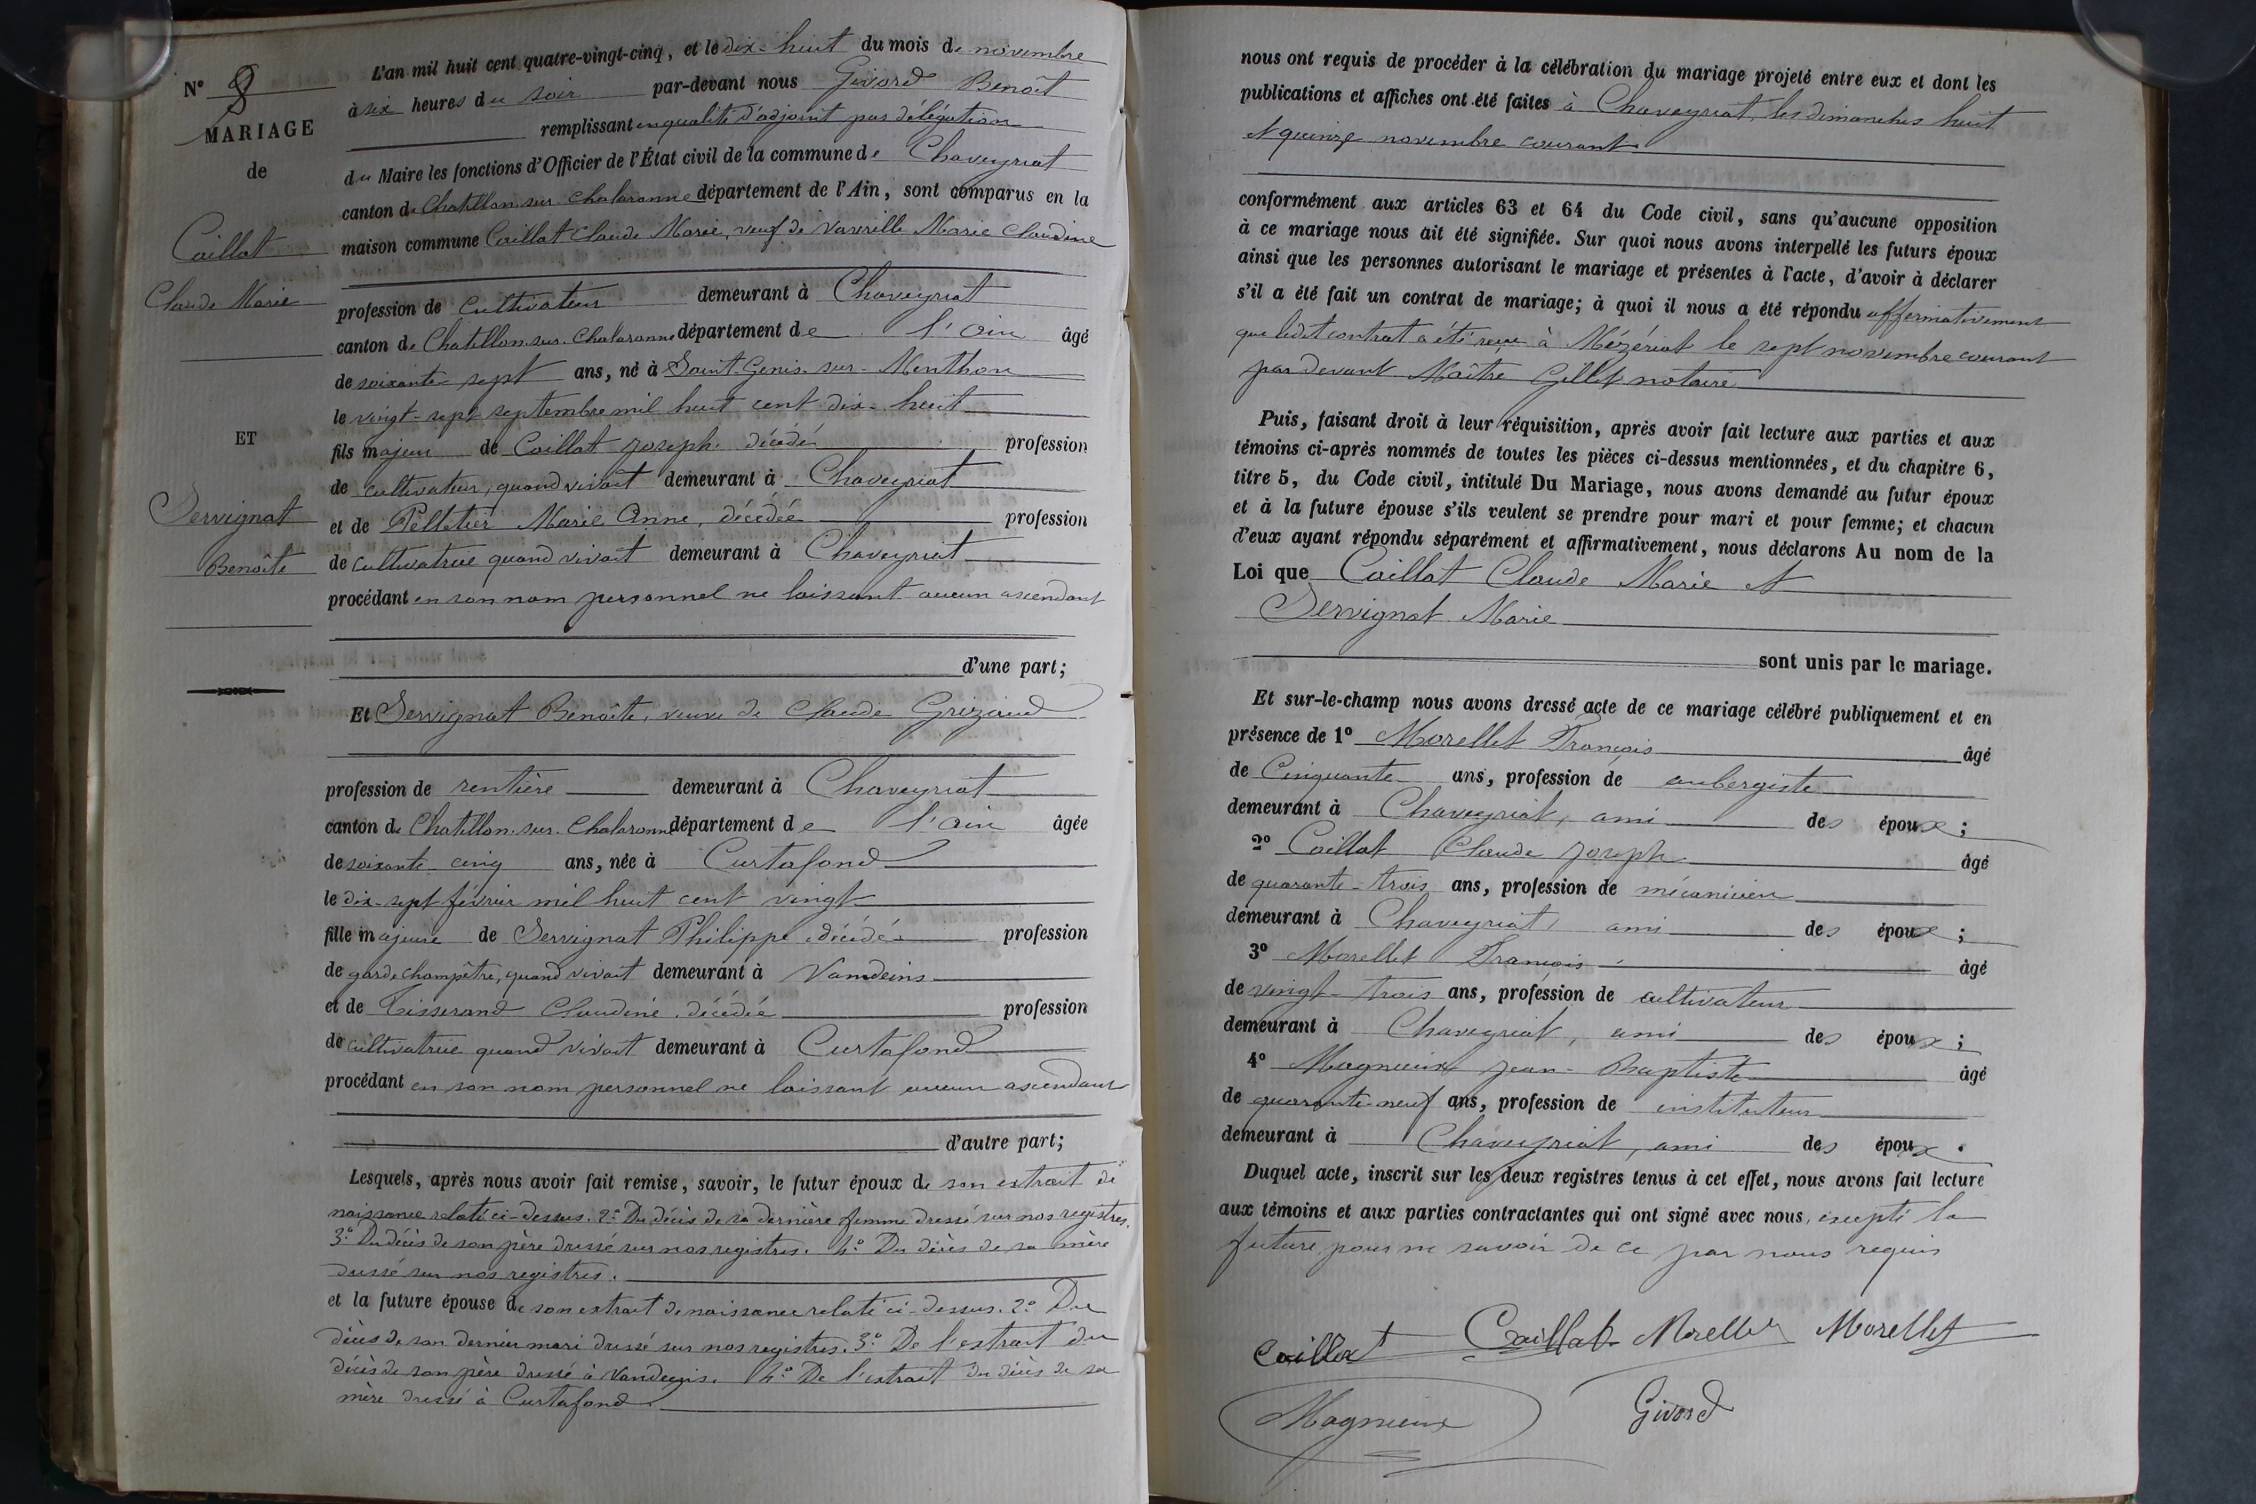 N° 8
MARIAGE
de
Caillat
Claude Marie
ET
Servignat
Benoîte
L'an mil huit cent quatre-vingt-cinq, et le dix-huit du mois de novembre
à six heures du soir par-devant nous Givord Benoît
remplissant en qualité d'adjoint par délégation
du Maire les fonctions d'Officier de l'État civil de la commune de Chaveyriat
canton de Chatillon-sur-Chalaronne département de l'Ain, sont comparus en la
maison commune Caillat Claude Marie, veuf de Marie Claudine
profession de cultivateur demeurant à Chaveyriat
canton de Chatillon-sur-Chalaronne département de l'Ain âgé
de soixante-sept ans, né à Saint-Genis-sur-Menthon
le vingt-sept septembre mil huit cent dix-huit
fils majeur de Caillat Joseph décédé profession
de cultivateur, quand vivait demeurant à Chaveyriat
et de Pelletier Marie Anne, décédée profession
de cultivatrice quand vivait demeurant à Chaveyriat
procédant en son nom personnel ne laissant aucun ascendant
d'une part;
Et Servignat Benoîte, veuve de Claude Grizaud
profession de rentière demeurant à Chaveyriat
canton de Chatillon-sur-Chalaronne département de l'Ain âgée
de soixante-cinq ans, née à Curtafond
le dix-sept février mil huit cent vingt
fille majeure de Servignat Philippe décédé profession
de garde champêtre, quand vivait demeurant à Vandeins
et de Tisserand Claudine, décédée profession
de cultivatrice quand vivait demeurant à Curtafond
procédant en son nom personnel ne laissant aucun ascendant
d'autre part;
Lesquels, après nous avoir fait remise, savoir, le futur époux de son extrait de
naissance relaté ci-dessus. 2° Du décès de sa dernière femme dressé sur nos registres.
3° Du décès de son père dressé sur nos registres. 4° Du décès de sa mère
dressé sur nos registres.
et la future épouse de son extrait de naissance relaté ci-dessus. 2° Du
décès de son dernier mari dressé sur nos registres. 3° De l'extrait du
décès de son père dressé à Vandeins. 4° De l'extrait du décès de sa
mère dressé à Curtafond.
nous ont requis de procéder à la célébration du mariage projeté entre eux et dont les
publications et affiches ont été faites à Chaveyriat, les dimanches huit
et quinze novembre courant
conformément aux articles 63 et 64 du Code civil, sans qu'aucune opposition
à ce mariage nous ait été signifiée. Sur quoi nous avons interpellé les futurs époux
ainsi que les personnes autorisant le mariage et présentes à l'acte, d'avoir à déclarer
s'il a été fait un contrat de mariage; à quoi il nous a été répondu affirmativement
que ledit contrat a été reçu à Mézériat le sept novembre courant
par devant Maître Gillet notaire
Puis, faisant droit à leur réquisition, après avoir fait lecture aux parties et aux
témoins ci-après nommés de toutes les pièces ci-dessus mentionnées, et du chapitre 6,
titre 5, du Code civil, intitulé Du Mariage, nous avons demandé au futur époux
et à la future épouse s'ils veulent se prendre pour mari et pour femme; et chacun
d'eux ayant répondu séparément et affirmativement, nous déclarons Au nom de la
Loi que Caillat Claude Marie et
Servignat Marie
sont unis par le mariage.
Et sur-le-champ nous avons dressé acte de ce mariage célébré publiquement et en
présence de 1° Morellet François âgé
de Cinquante ans, profession de aubergiste
demeurant à Chaveyriat, ami des époux;
2° Caillat Claude Joseph âgé
de quarante-trois ans, profession de mécanicien
demeurant à Chaveyriat, ami des époux;
3° Morellet François âgé
de vingt-trois ans, profession de cultivateur
demeurant à Chaveyriat, ami des époux;
4° Magnieux Jean-Baptiste âgé
de quarante-neuf ans, profession de instituteur
demeurant à Chaveyriat, ami des époux.
Duquel acte, inscrit sur les deux registres tenus à cet effet, nous avons fait lecture
aux témoins et aux parties contractantes qui ont signé avec nous, excepté la
future pour ne savoir de ce par nous requis
Caillat Caillat Morellet Morellet
Magnieux Givord